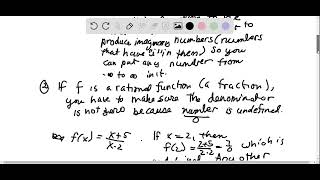 to
produce imaginary numbers (numbers
that have "i" in them) so you
can put any number from
-∞ to ∞ in it.
③ If f is a rational function (a fraction),
you have to make sure the denominator
is not zero because number/0 is undefined.
f(x) = x+5/x-2. If x=2, then
f(2) = 2+5/2-2 = 7/0 which is
Any other